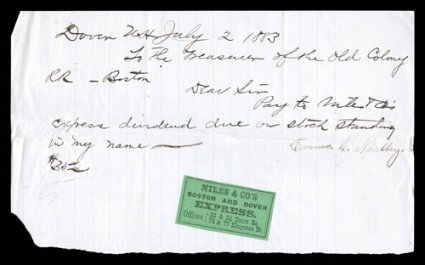 Dover NH July 2 1883
To the Treasurer of the Old Colony
RR - Boston
Dear Sir
Pay to Niles & Co
express dividend due on stock standing
in my name
Emma C.
$35
NILES & CO'S
BOSTON AND DOVER
EXPRESS.
Offices
33 & 34 Court Sq.
75 & 77 Kingston St.